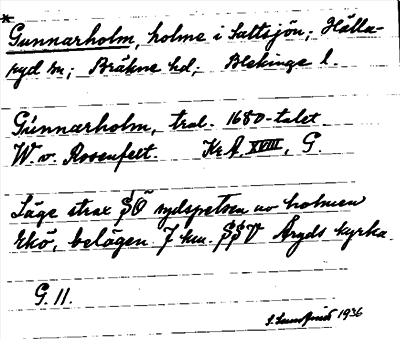 *
Gunnarholm, holme i Saltsjön; Hälla-
ryd sn; Bräkne hd; Blekinge l.
Gúnnarholm, trol. 1680-talet.
W. v. Rosenfelt. Kr A. XVIII, G.
Läge strax SÖ sydspetsen av holmen
Ekö, belägen 7 km. SSV Åryds kyrka.
G. 11.
1936